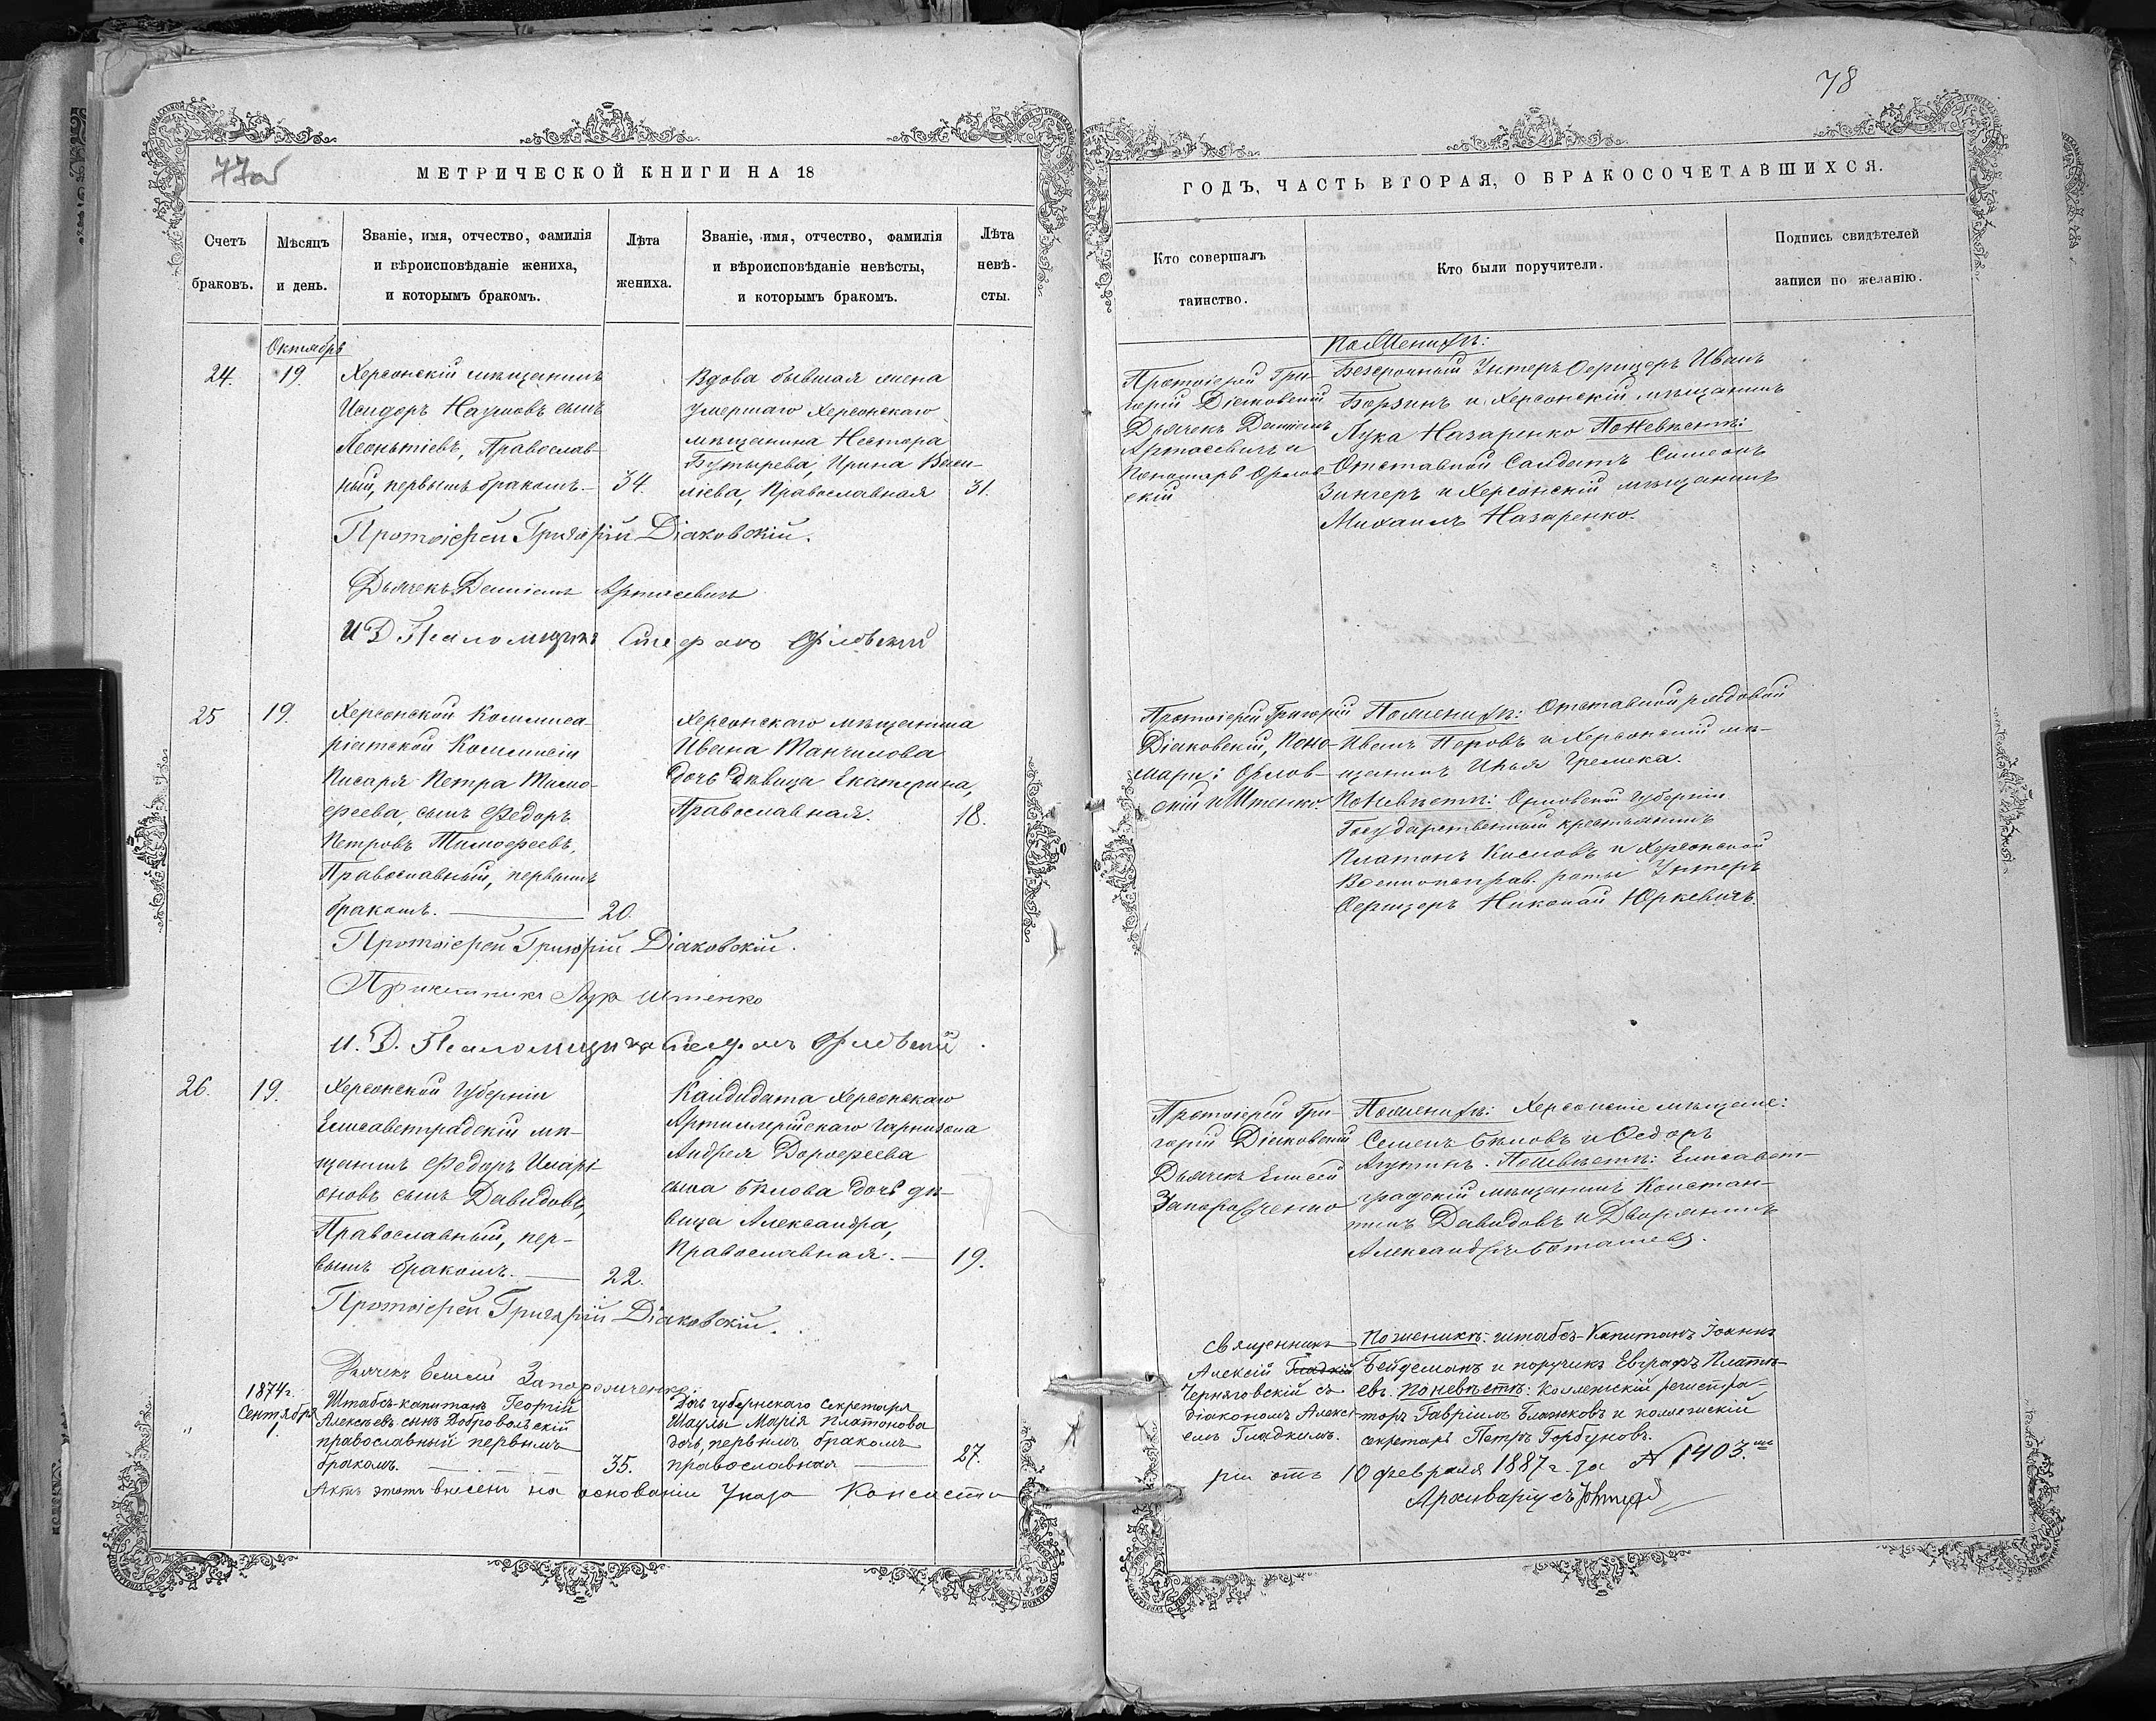 78
77об
МЕТРИЧЕСКОЙ КНИГИ НА 18
Счетъ браковъ.
Мѣсяцъ и день.
Званіе, имя, отчество, фамилія
и вѣроисповѣданіе жениха,
и которымъ бракомъ.
Лѣта жениха.
Званіе, имя, отчество, фамилія
и вѣроисповѣданіе невѣсты,
и которымъ бракомъ.
Лѣта невѣ-
сты.
Октябрь
24.
19.
Херсонскій мѣщанинъ
Исидоръ Наумовъ сынъ
Леонтіевъ, Православ-
ный, первымъ бракомъ.
34.
Вдова бывшая жена
умершаго Херсонскаго
мѣщанина Нестора
Бутырева, Ирина Васи-
лева, Православная
31.
Протоіерей Григорій Діаковскій.
Дьячекъ Даміанъ Артасевичъ
И Д Псаломщика Стефанъ Орловскій
25
19.
Херсонской Коммиса-
ріатской Коммисіи
Писаря Петра Тимо-
феева, сынъ Федоръ
Петровъ Тимофеевъ,
Православный, первымъ
бракомъ.
20.
Херсонскаго мѣщанина
Ивана Манчилова
дочь дѣвица Екатерина,
Православная.
18.
Протоіерей Григорій Діаковскій.
Причетникъ Штенко
И. Д. Псаломщика Стефанъ Орловскій
26.
19.
Херсонской Губерніи
Елисаветградскій мѣ-
щанинъ Федоръ Иларі-
оновъ сынъ Давидовъ,
Православный, пер-
вымъ бракомъ.
22.
Кандидата Херсонскаго
Артиллерійскаго гарнизона
Андрея Дорофеева
сына Бѣлова дочь дѣ-
вица Александра,
Православная.
19.
Протоіерей Григорій Діаковскій.
Дьячекъ Елисей Запорожченко
1874г.
Сентября
1
"
Штабсъ-капитанъ Георгій
Алексѣевъ сынъ Добровольскій
православный первымъ
бракомъ.
35.
Дочь губернскаго секретаря
Шаулы Марія Платонова
дочь, первымъ бракомъ
православная
27.
Актъ этотъ внесенъ на основаніи Указа Консисто
ГОДЪ, ЧАСТЬ ВТОРАЯ, О БРАКОСОЧЕТАВШИХСЯ.
Кто совершалъ
таинство.
Кто были поручители.
Подпись свидѣтелей
записи по желанію.
Протоіерей Гри-
горій Діаковскій
Дьячекъ Даміанъ
Артасевичъ и
Пономарь Орлов-
скій
По Женихѣ:
Безсрочный Унтеръ Офицеръ Иванъ
Борзинъ и Херсонскій мѣщанинъ
Лука Назаренко По Невѣстѣ:
Отставной Солдатъ Симеонъ
Зингеръ и Херсонскій мѣщанинъ
Михаилъ Назаренко.
Протоіерей Григорій
Діаковскій, Поно-
мари: Орлов-
скій и Штенко.
По женихѣ: Отставной рядовой
Иванъ Перовъ и Херсонскій мѣ-
щанинъ Илья Гремека.
По Невѣстѣ: Орловской Губерніи
Государственный крестьянинъ
Платонъ Кисловъ и Херсонской
Военноисправ. роты Унтеръ
Офицеръ Николай Юркевичъ.
Протоіерей Гри-
горій Діаковскій
Дьячекъ Елисей
Запорожченко
По женихѣ: Херсонскіе мѣщане:
Семенъ Бѣловъ и Федоръ
Агутинъ. По Невѣстѣ: Елисавет-
градскій мѣщанинъ Констан-
тинъ Давидовъ и Дворянинъ
Александръ Боташевъ.
Священникъ
Алексій Гладкій
Черняговскій съ
діакономъ Алексі-
емъ Гладкимъ.
По женихѣ: штабсъ-Капитанъ Іоаннъ
Бейдеманъ и поручикъ Евграфъ Плато-
евъ. По невѣстѣ: Коллежскій регистра-
торъ Гавріилъ Блажковъ и коллежскій
секретарь Петръ Горбуновъ.
ріи отъ 10 февраля 1887 г. за № 1403.
Архиваріусъ